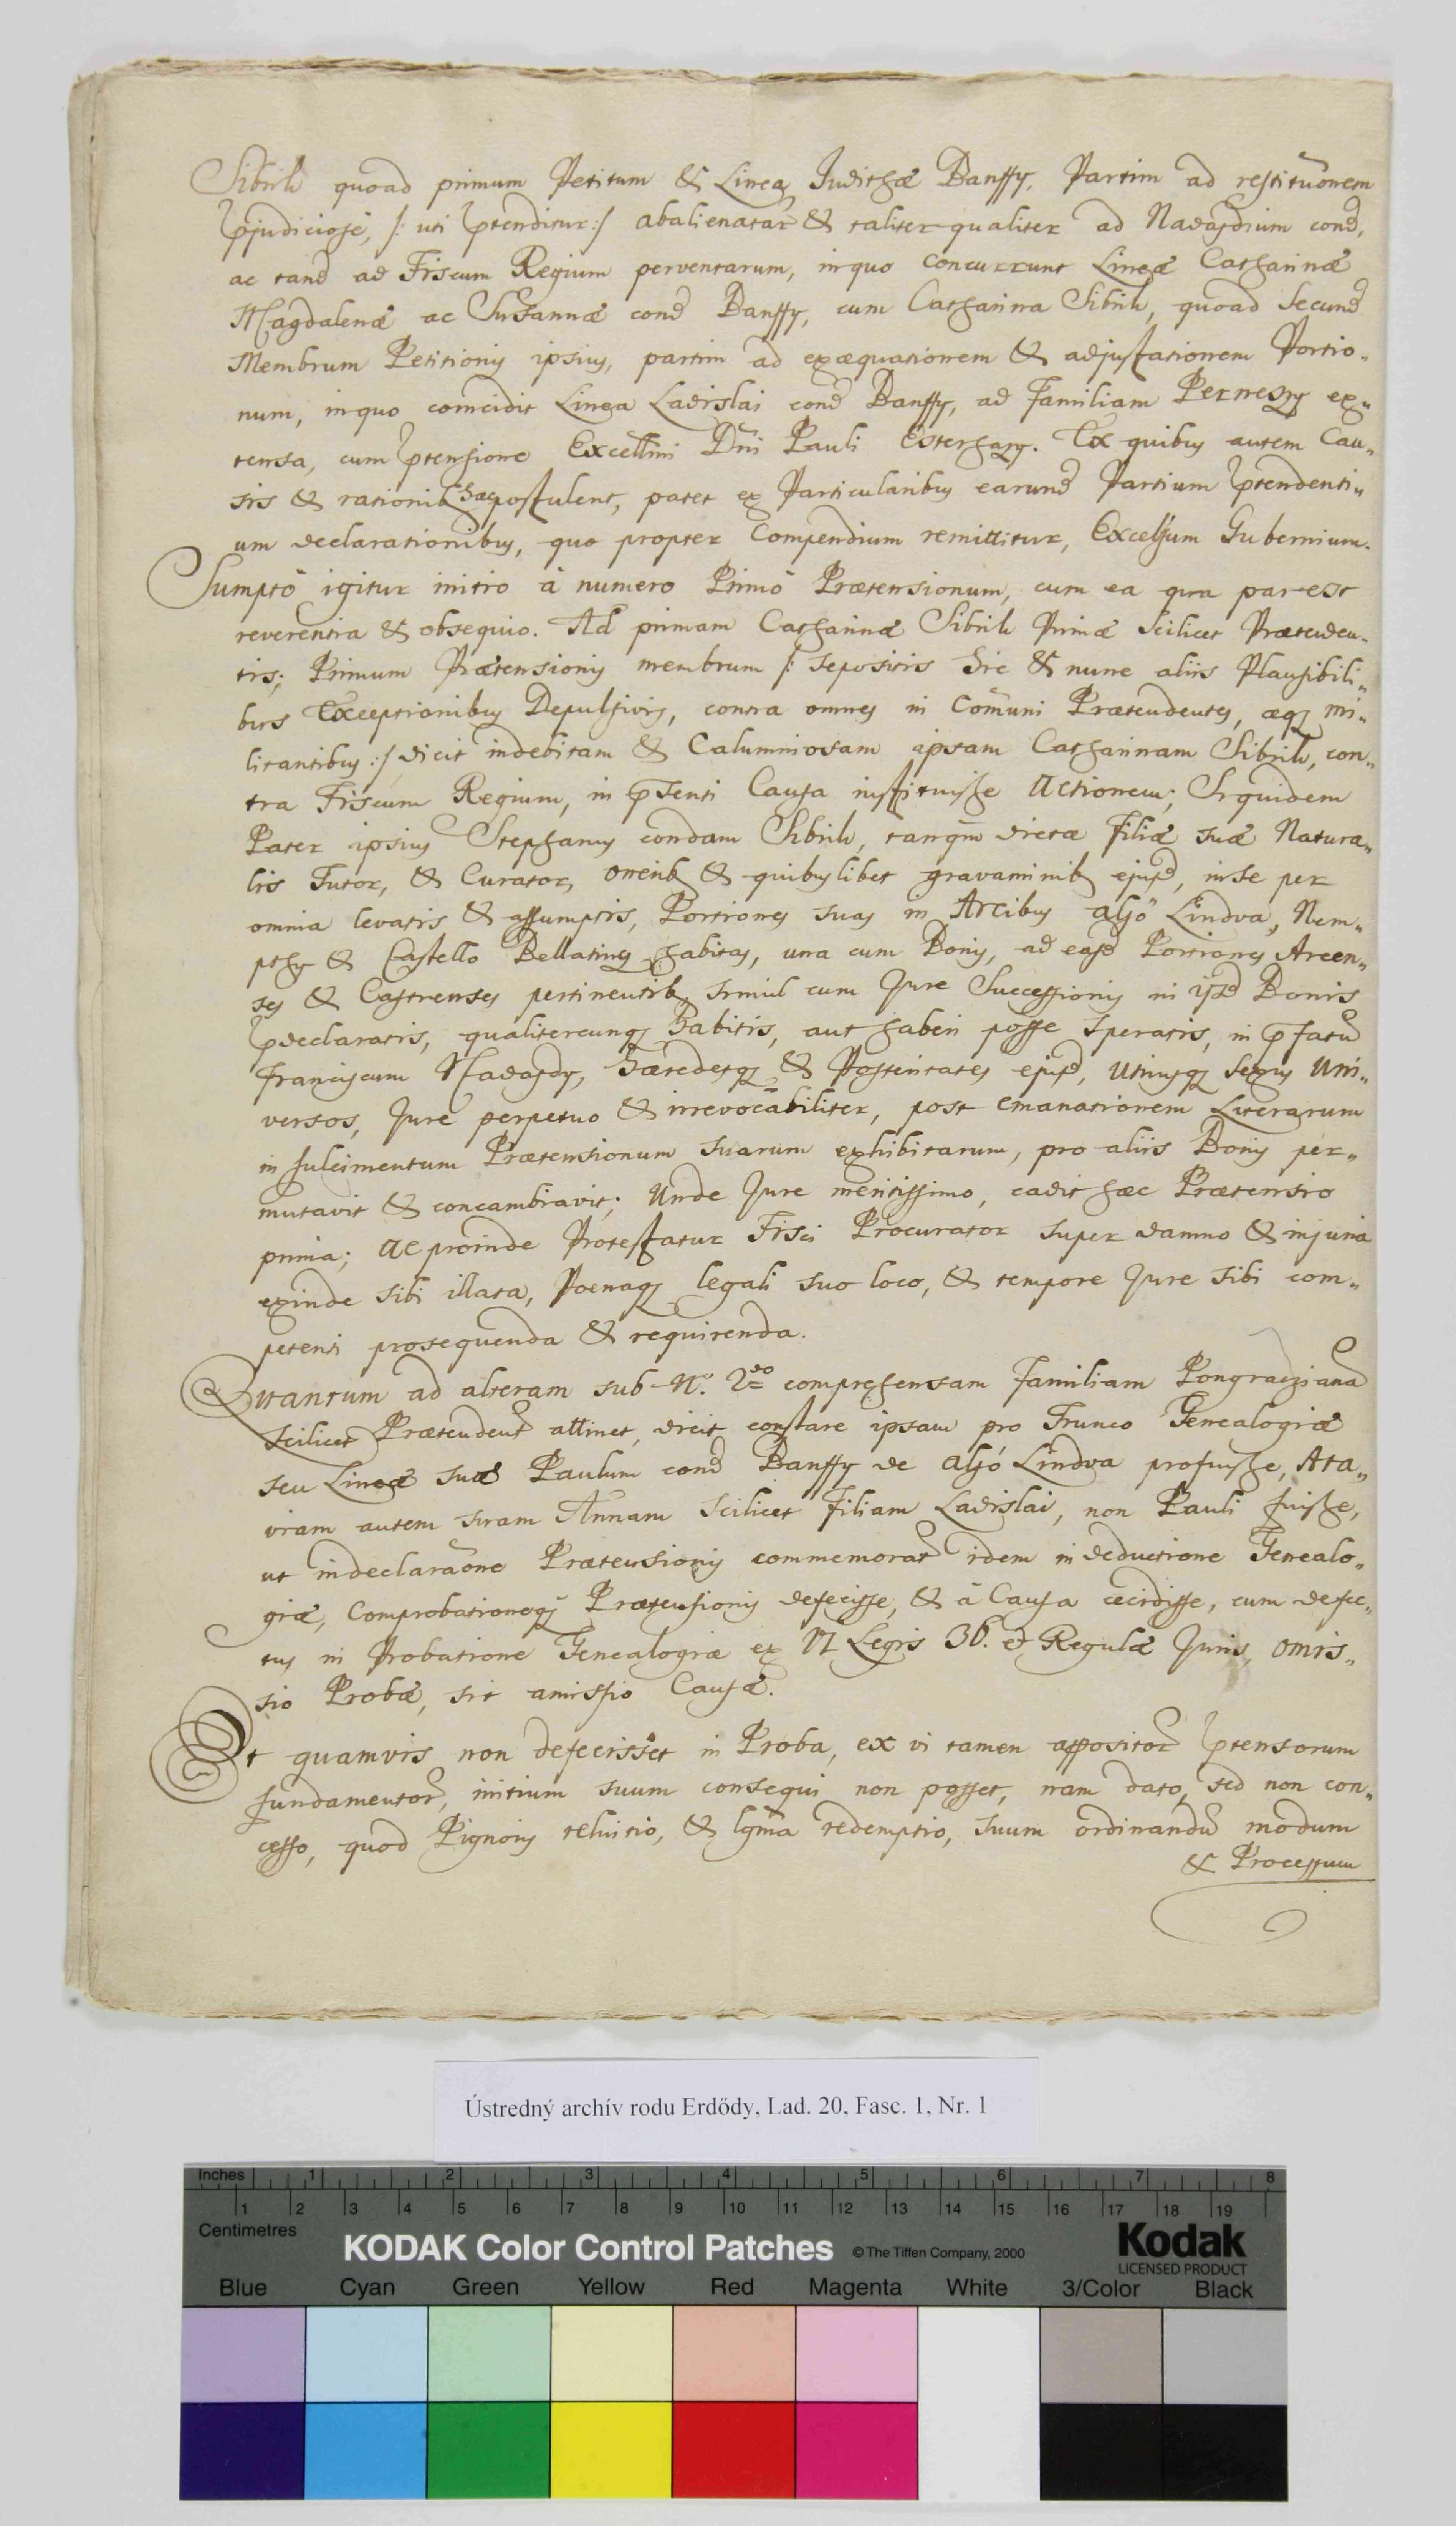 Sibrik quoad primum Petitum & Lineæ Judithæ Banffy, Partim ad restitu͠onem
p̱judiciose, /: uti p̱tenditur :/ abalienatar̃ & taliter qualiter ad Nadasdium cond,
ac tand ad Fiscum Regium perventarum, in quo concurrunt Lineæ Catharinæ
Magdalenæ ac Susannæ cond Banffy, cum Catharina Sibrik, quoad Secund
Membrum Petitionis ipsius, partim ad exæquationem & adjustationem Portio„
num, in quo coincidit Linea Ladislai cond Banffy, ad Familiam Perneszy ex„
tensa, cum p̱tensione Excellm̃i Dñi Pauli Esterhazy. Ex quibus autem Cau„
sis & rationib hæc postulent, patet ex Particularibus earund Partium p̱tendenti„
um declarationibus, quo propter Compendium remittitur, Excelsum Gubernium.
Sumptô igitur initio â numero Primô Prætensionum, cum ea qua par est
reverentia & obsequio. Ad primam Catharinæ Sibrik Primæ Scilicet Prætenden„
tis; Primum Prætensionis membrum /: sepositis hic & nunc aliis Plausibili„
bus Exceptionibus Depulsivis, contra omnes in Com̃uni Prætendentes, æq mi„
litantibus :/ dicit indebitam & Calumniosam ipsam Catharinam Sibrik, con„
tra Fiscum Regium, in p̱senti Causa instituisse Actionem; Siquidem
Pater ipsius Stephanus condam Sibrik, tanqm̃ dictæ Filiæ suæ Natura„
lis Tutor, & Curator, onerib & quibuslibet gravaminib ejusd, in se per
omnia levatis & assumptis, Portiones suas in Arcibus Alsó Lindva, Nem„
pthy & Castello Bellatincz habitas, una cum Bonis, ad easd Portiones Arcen„
ses & Castrenses pertinentib, simul cum Jure Successionis in ijsd Bonis
p̱declaratis, qualitercunq habitis, aut haberi posse speratis, in p̱fatu
Franciscum Nadasdy, Hæredesq & Posteritates ejusd, Utriusq sexus Uni„
versos, Jure perpetuo & irrevocabiliter, post emanationem Literarum
in fulcimentum Prætensionum suarum exhibitarum, pro aliis Bonis per„
mutavit & concambiavit; Unde Jure meritissimo, cadit hæc Prætensio
prima; ac proinde Protestatur Fisci Procurator super damno & injuria
exinde sibi illata, Poenaq legali suo loco, & tempore Jure sibi com„
petenti prosequenda & requirenda.
Quantum ad alteram sub N.º 2do comprehensam Familiam Pongracziana
scilicet Prætendent attinet, dicit constare ipsam pro Trunco Genealogiæ
seu Lineæ suæ Paulum cond Banffy de Alsó Lindva profuisse, Ata„
viam autem suam Annam Scilicet Filiam Ladislai, non Pauli fuisse,
ut in declara͠one Prætensionis commemorat idem in deductione Genealo„
giæ, Comprobationeq Prætensionis defecisse, & â Causa cecidisse, cum defec„
tus in Probatione Genealogiæ ex N Legis 36. et Regulæ Juris, omis„
sio Probæ, sit amissio Causæ.
Et quamvis non defecisset in Proba, ex vi tamen appositor p̱tensorum
fundamentor, initium suum consequi non posset, nam dato, sed non con„
cesso, quod Pignoris reluitio, & lgm̃a redemptio, suum ordinandu modum
& Processum
Ústredný archív rodu Erdődy, Lad. 20, Fasc. 1, Nr. 1
Inches 1 2 3 4 5 6 7 8
1 2 3 4 5 6 7 8 9 10 11 12 13 14 15 16 17 18 19
Centimetres
KODAK Color Control Patches © The Tiffen Company, 2000 Kodak
LICENSED PRODUCT
Blue Cyan Green Yellow Red Magenta White 3/Color Black